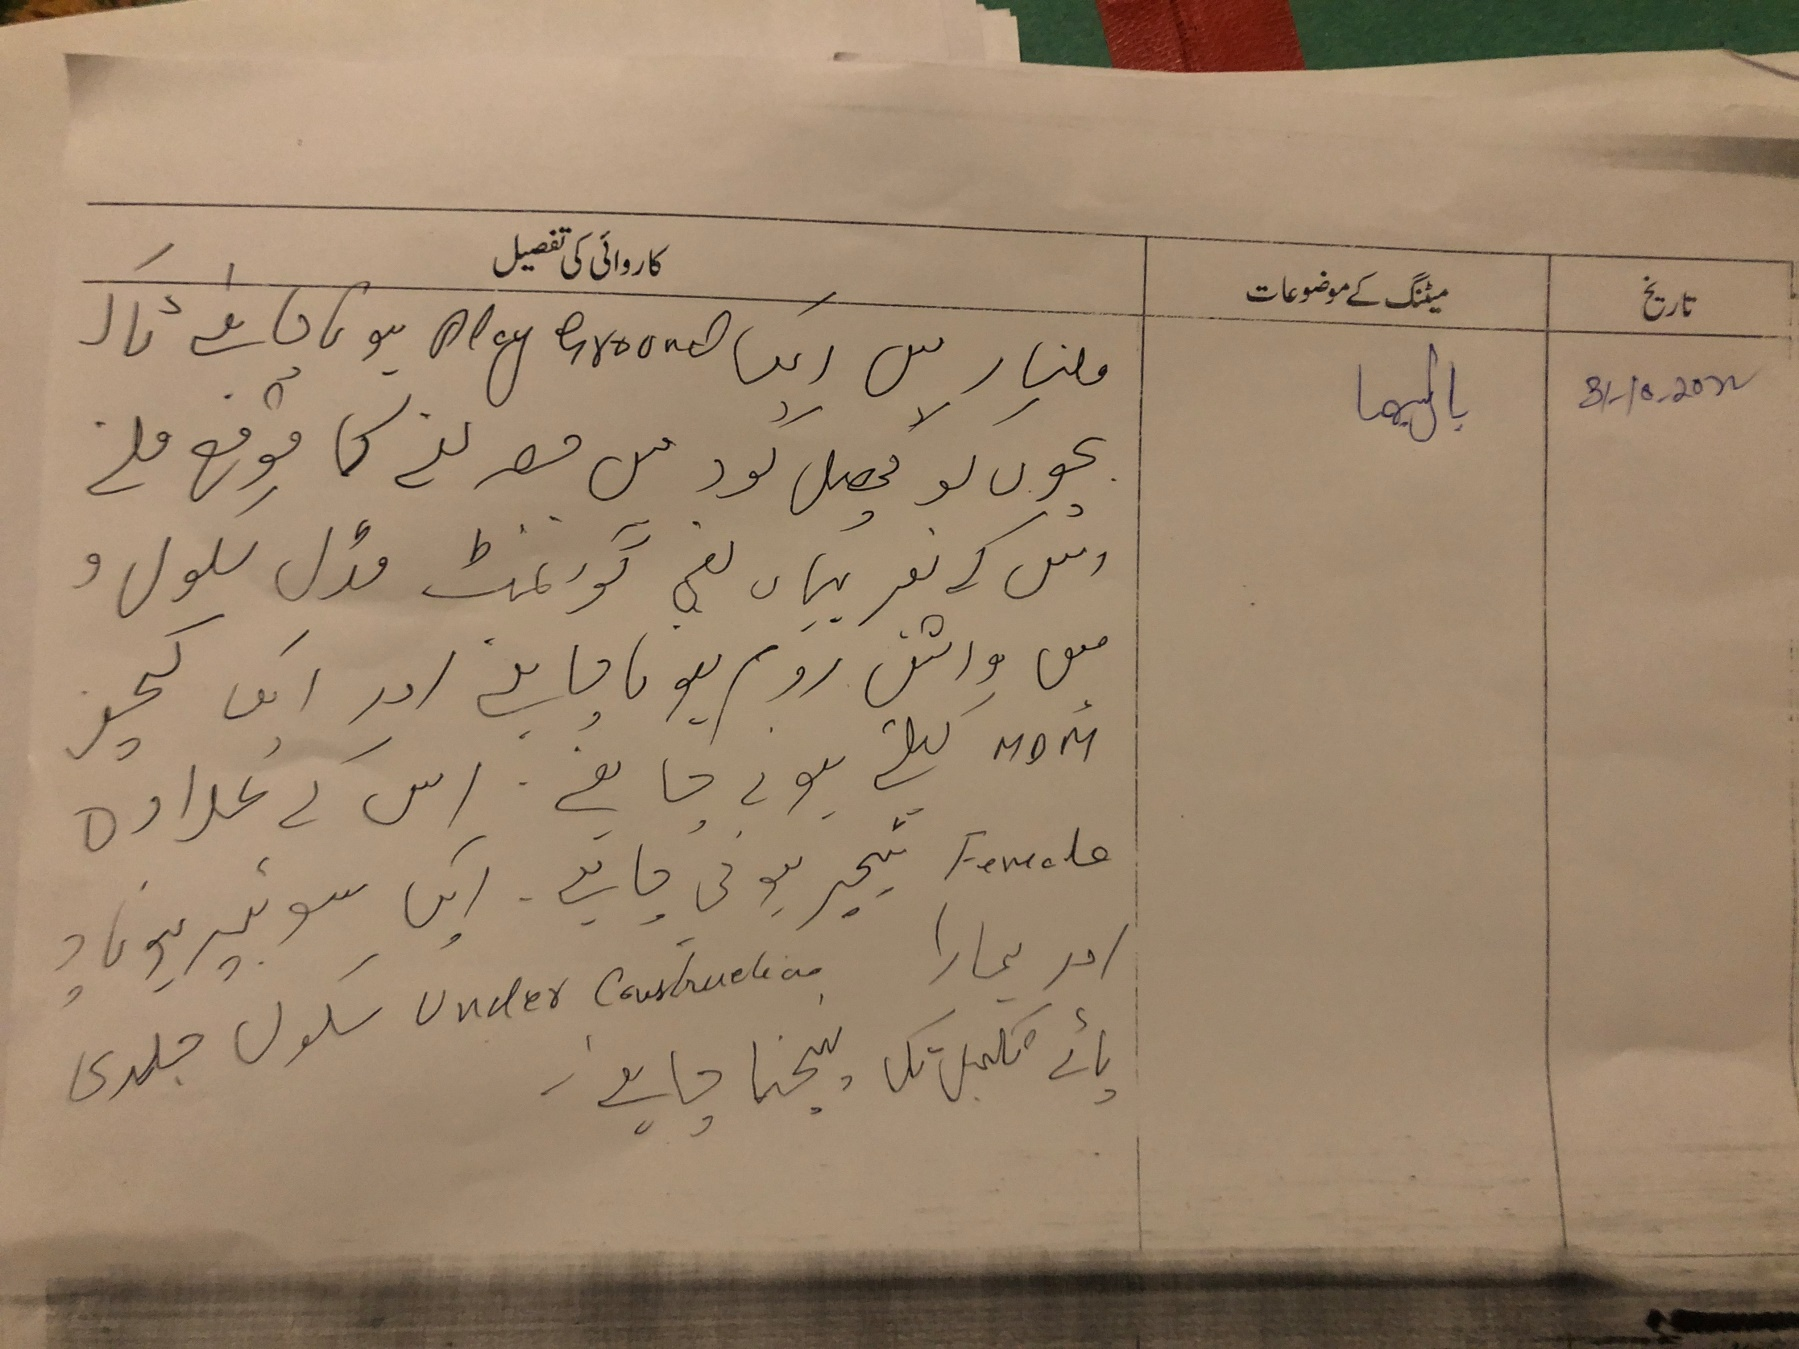 تاریخ
میٹنگ کے موضوعات
کاروائی کی تفصیل
31-10-2022
بال سبھا
میں ایک Play Ground ہونا چاہئے تاکہ
بچوں کو کھیل کود میں حصہ لینے کا موقع ملے
اس کے یہاں گورنمنٹ مڈل سکول
میں واش روم ہونا چاہئے اور ایک کچن
MDM کیلئے ہونی چاہئے۔ اس کے علاوہ
Female ٹیچر ہونی چاہئے۔ ایک سوئیپر ہونا چ
اور ہمارا Under Construction سکول جلدی
پائے تکمیل تک پہنچنا چاہئے۔